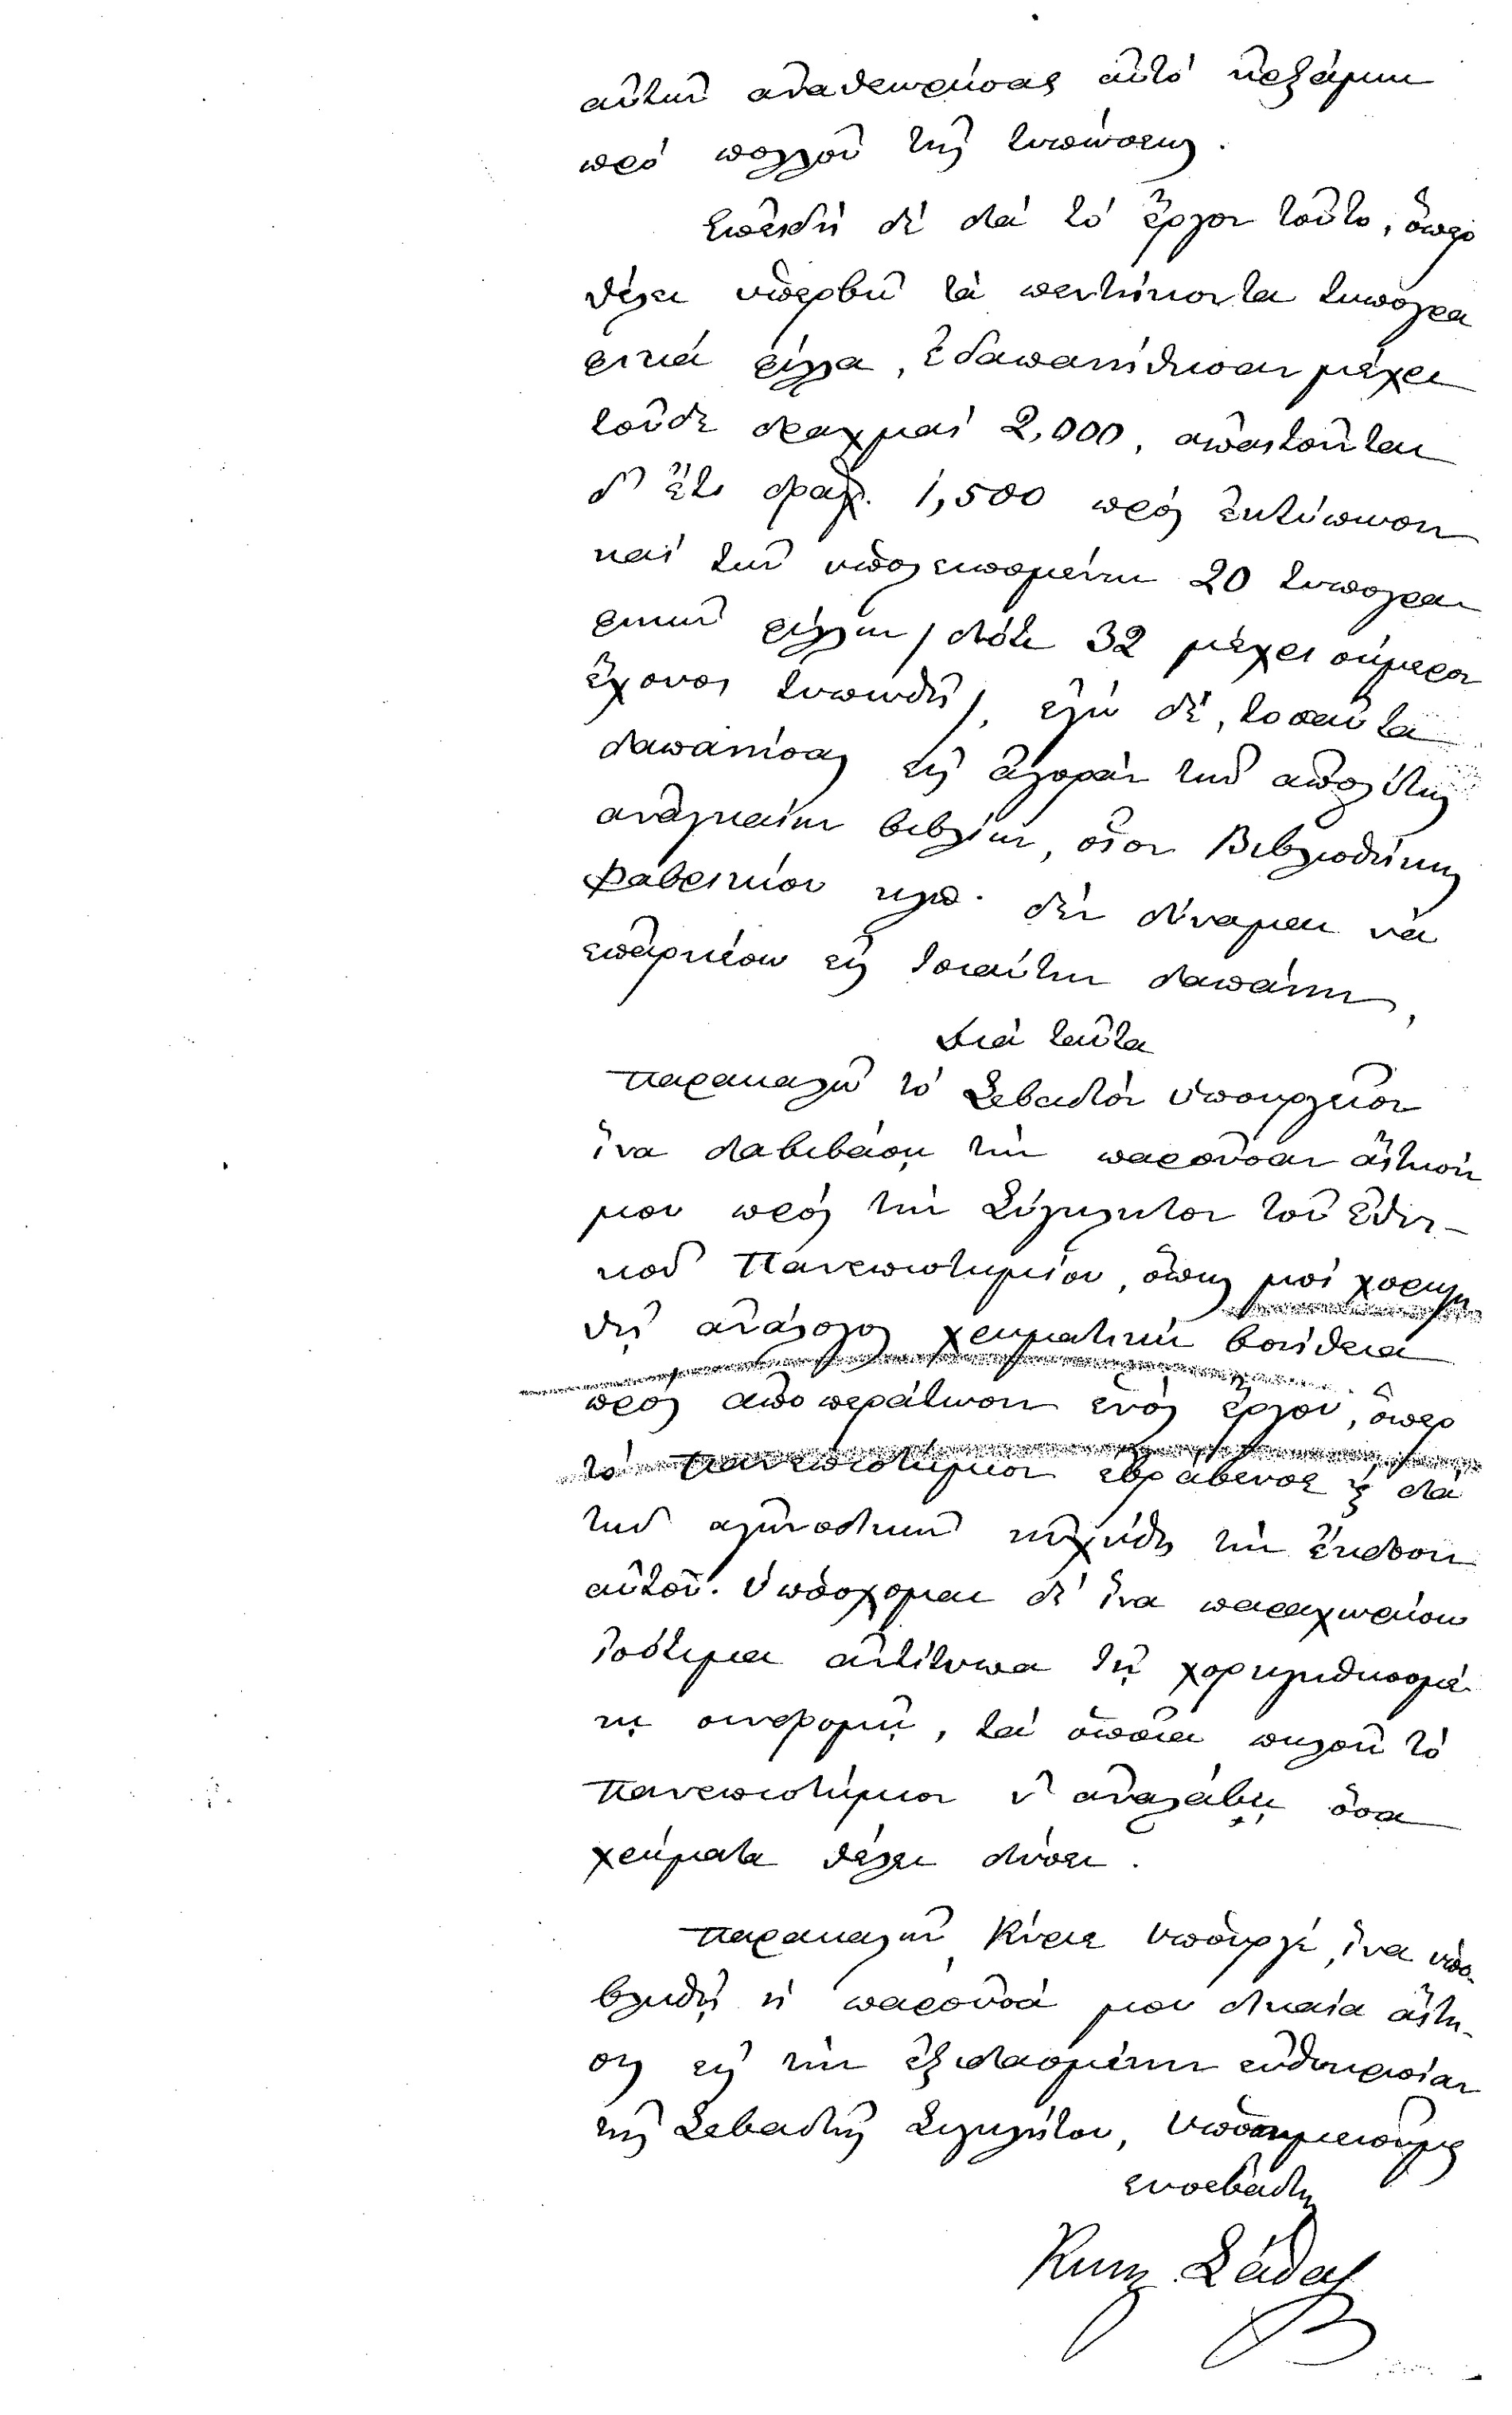 αὐτῶν ἀναθεωρήσας αὐτό ἠρξάμην
πρό πολλοῦ τῆς τυπώσεως.
Ἐπειδή δέ διά τό ἔργον τοῦτο, ὅπερ
θέλει ὑπερβῆ τά πεντήκοντα τυπογρα
φικά φύλλα, ἐδαπανήθησαν μέχρι
τοῦδε δραχμαί 2,000, ἀπαιτοῦνται
δ' ἔτι δραχ. 1,500 πρός ἐκτύπωσιν
καί τῶν ὑπολειπομένων 20 τυπογρα
φικῶν φύλλων / διότι 32 μέχρι σήμερον
ἔχουσι τυπωθῆ /, ἐγώ δέ, τοσαῦτα
δαπανήσας εἰς ἀγοράν τῶν ἀπολύτως
ἀναγκαίων βιβλίων, οἷον Βιβλιοθήκης
Φαβρικίου κλπ. δέν δύναμαι νά
ἐπαρκέσω εἰς τοιαύτην δαπάνην,
Διά ταῦτα
Παρακαλῶ τό Σεβαστόν Ὑπουργεῖον
ἵνα διαβιβάσῃ τήν παροῦσαν αἴτησίν
μου πρός τήν Σύγκλητον τοῦ Ἐθνι-
κοῦ Πανεπιστημίου, ὅπως μοί χορηγη
θῇ ἀνάλογος χρηματική βοήθεια
πρός ἀποπεράτωσιν ἑνός ἔργου, ὅπερ
τό Πανεπιστήμιον ἐβράβευσε ἤ διά
τῶν ἀγωνοδικῶν ηὐχήθη τήν ἔκδοσιν
αὐτοῦ. Ὑπόσχομαι δέ ἵνα παραχωρήσω
ἰσότιμα ἀντίτυπα τῇ χορηγηθησομέ-
νῃ συνδρομῇ, τά ὁποῖα πωλοῦν τό
Πανεπιστήμιον ν' ἀναλάβῃ ὅσα
χρήματα θέλει δώσει.
Παρακαλῶν, Κύριε Ὑπουργέ, ἵνα ὑπο-
βληθῇ ἡ παροῦσά μου δικαία αἴτη-
σις εἰς τήν ἐξιδιασμένην εὐθυκρισίαν
τῆς Σεβαστῆς Συγκλήτου, Ὑποσημειοῦμαι
εὐσεβάστως
Κων. Σάθας